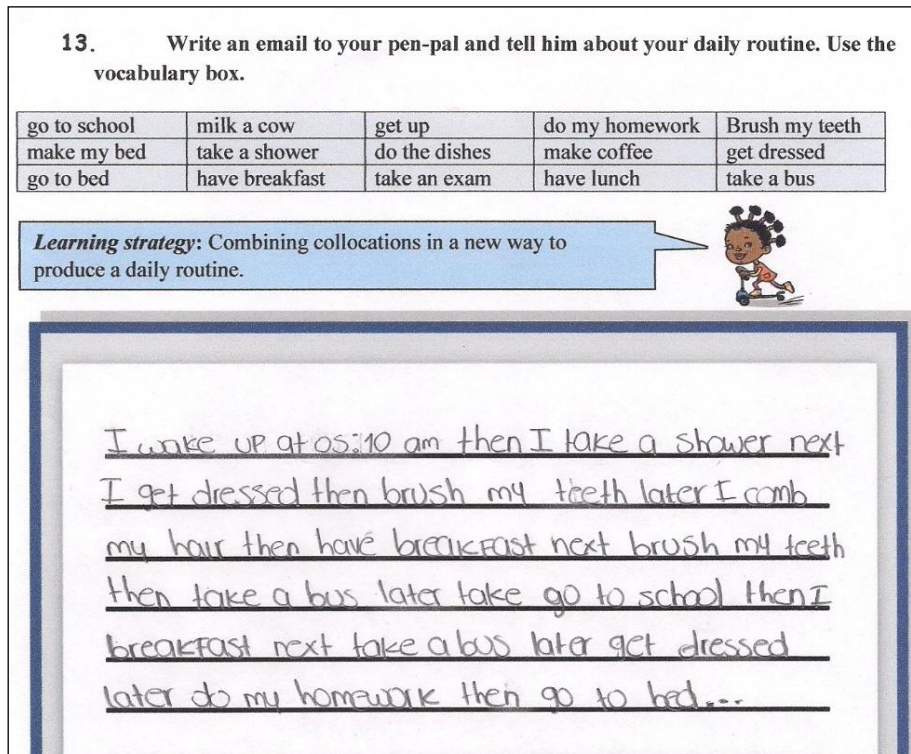 13. Write an email to your pen-pal and tell him about your daily routine. Use the
vocabulary box.
go to school milk a cow get up do my homework Brush my teeth
make my bed take a shower do the dishes make coffee get dressed
go to bed have breakfast take an exam have lunch take a bus
Learning strategy: Combining collocations in a new way to
produce a daily routine.
I wake up at 05:10 am then I take a shower next
I get dressed then brush my teeth later I comb
my hair then have breakfast next brush my teeth
then take a bus later take go to school then I
breakfast next take a bus later get dressed
later do my homework then go to bed...